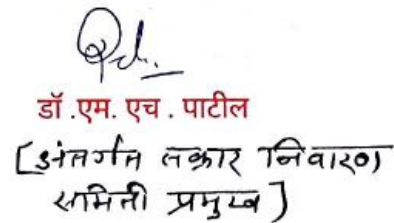 डॉ .एम. एच . पाटील
[अंतर्गत तक्रार निवारण
समिती प्रमुख]